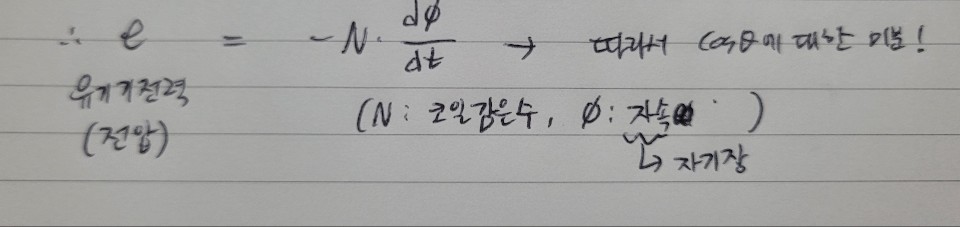 ∴ e = -N· dφ/dt → 따라서 cosθ에 대한 미분!
유기기전력
(전압)
(N : 코일감은수, φ : 자속)
↳ 자기장